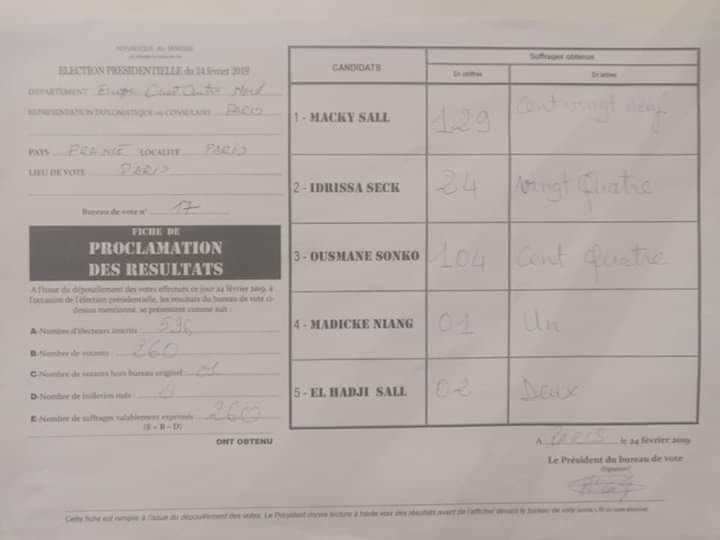 REPUBLIQUE du SENEGAL
ELECTION PRESIDENTIELLE du 24 février 2019
DEPARTEMENT Europe Ouest Centre Nord
REPRESENTATION DIPLOMATIQUE ou CONSULAIRE PARIS
PAYS FRANCE LOCALITÉ PARIS
LIEU DE VOTE PARIS
Bureau de vote n° 17
FICHE DE
PROCLAMATION
DES RESULTATS
A l'issue du dépouillement des votes effectués ce jour 24 février 2019, à
l'occasion de l'élection présidentielle, les résultats du bureau de vote ci-
dessus mentionné, se présentent comme suit :
A-Nombre d'électeurs inscrits : 596
B-Nombre de votants : 260
C-Nombre de votants hors bureau originel : 01
D-Nombre de bulletins nuls : 0
E-Nombre de suffrages valablement exprimés 260
(E = B - D)
ONT OBTENU
CANDIDATS
Suffrages obtenus
En chiffres
En lettres
1 - MACKY SALL 129 Cent vingt neuf
2 - IDRISSA SECK 24 Vingt Quatre
3 - OUSMANE SONKO 104 Cent Quatre
4 - MADICKE NIANG 01 Un
5 - EL HADJI SALL 02 Deux
A PARIS le 24 février 2019
Le Président du bureau de vote
(Signature)
Cette fiche est remplie à l'issue du dépouillement des votes. Le Président donne lecture à haute voix des résultats avant de l'afficher devant le bureau de vote